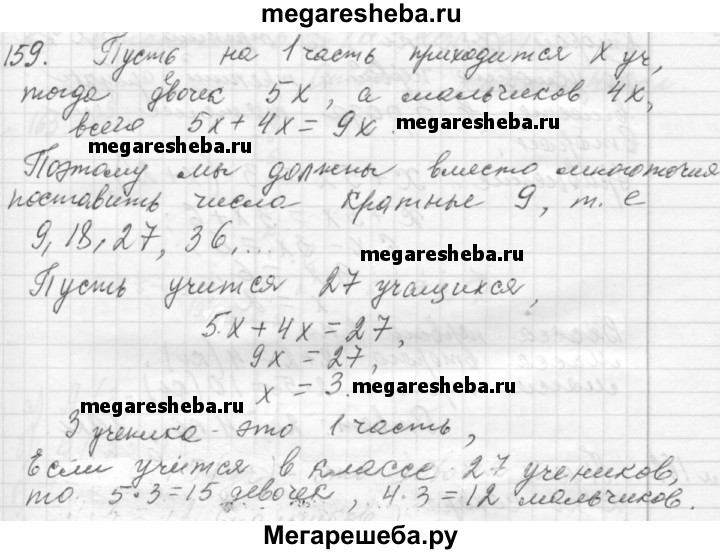 megaresheba.ru
159. Пусть на 1 часть приходится x уч,
тогда двочек 5x, а мальчиков 4x,
всего 5x + 4x = 9x. megaresheba.ru
megaresheba.ru
Поэтому мы должны вместо многоточия
поставить числа кратные 9, т. е
9, 18, 27, 36,... megaresheba.ru
Пусть учится 27 учащихся,
5x + 4x = 27,
9x = 27,
x = 3. megaresheba.ru
megaresheba.ru
3 ученика - это 1 часть,
Если учится в классе 27 учеников,
то 5·3=15 девочек, 4·3=12 мальчиков.
Мегарешеба.ру